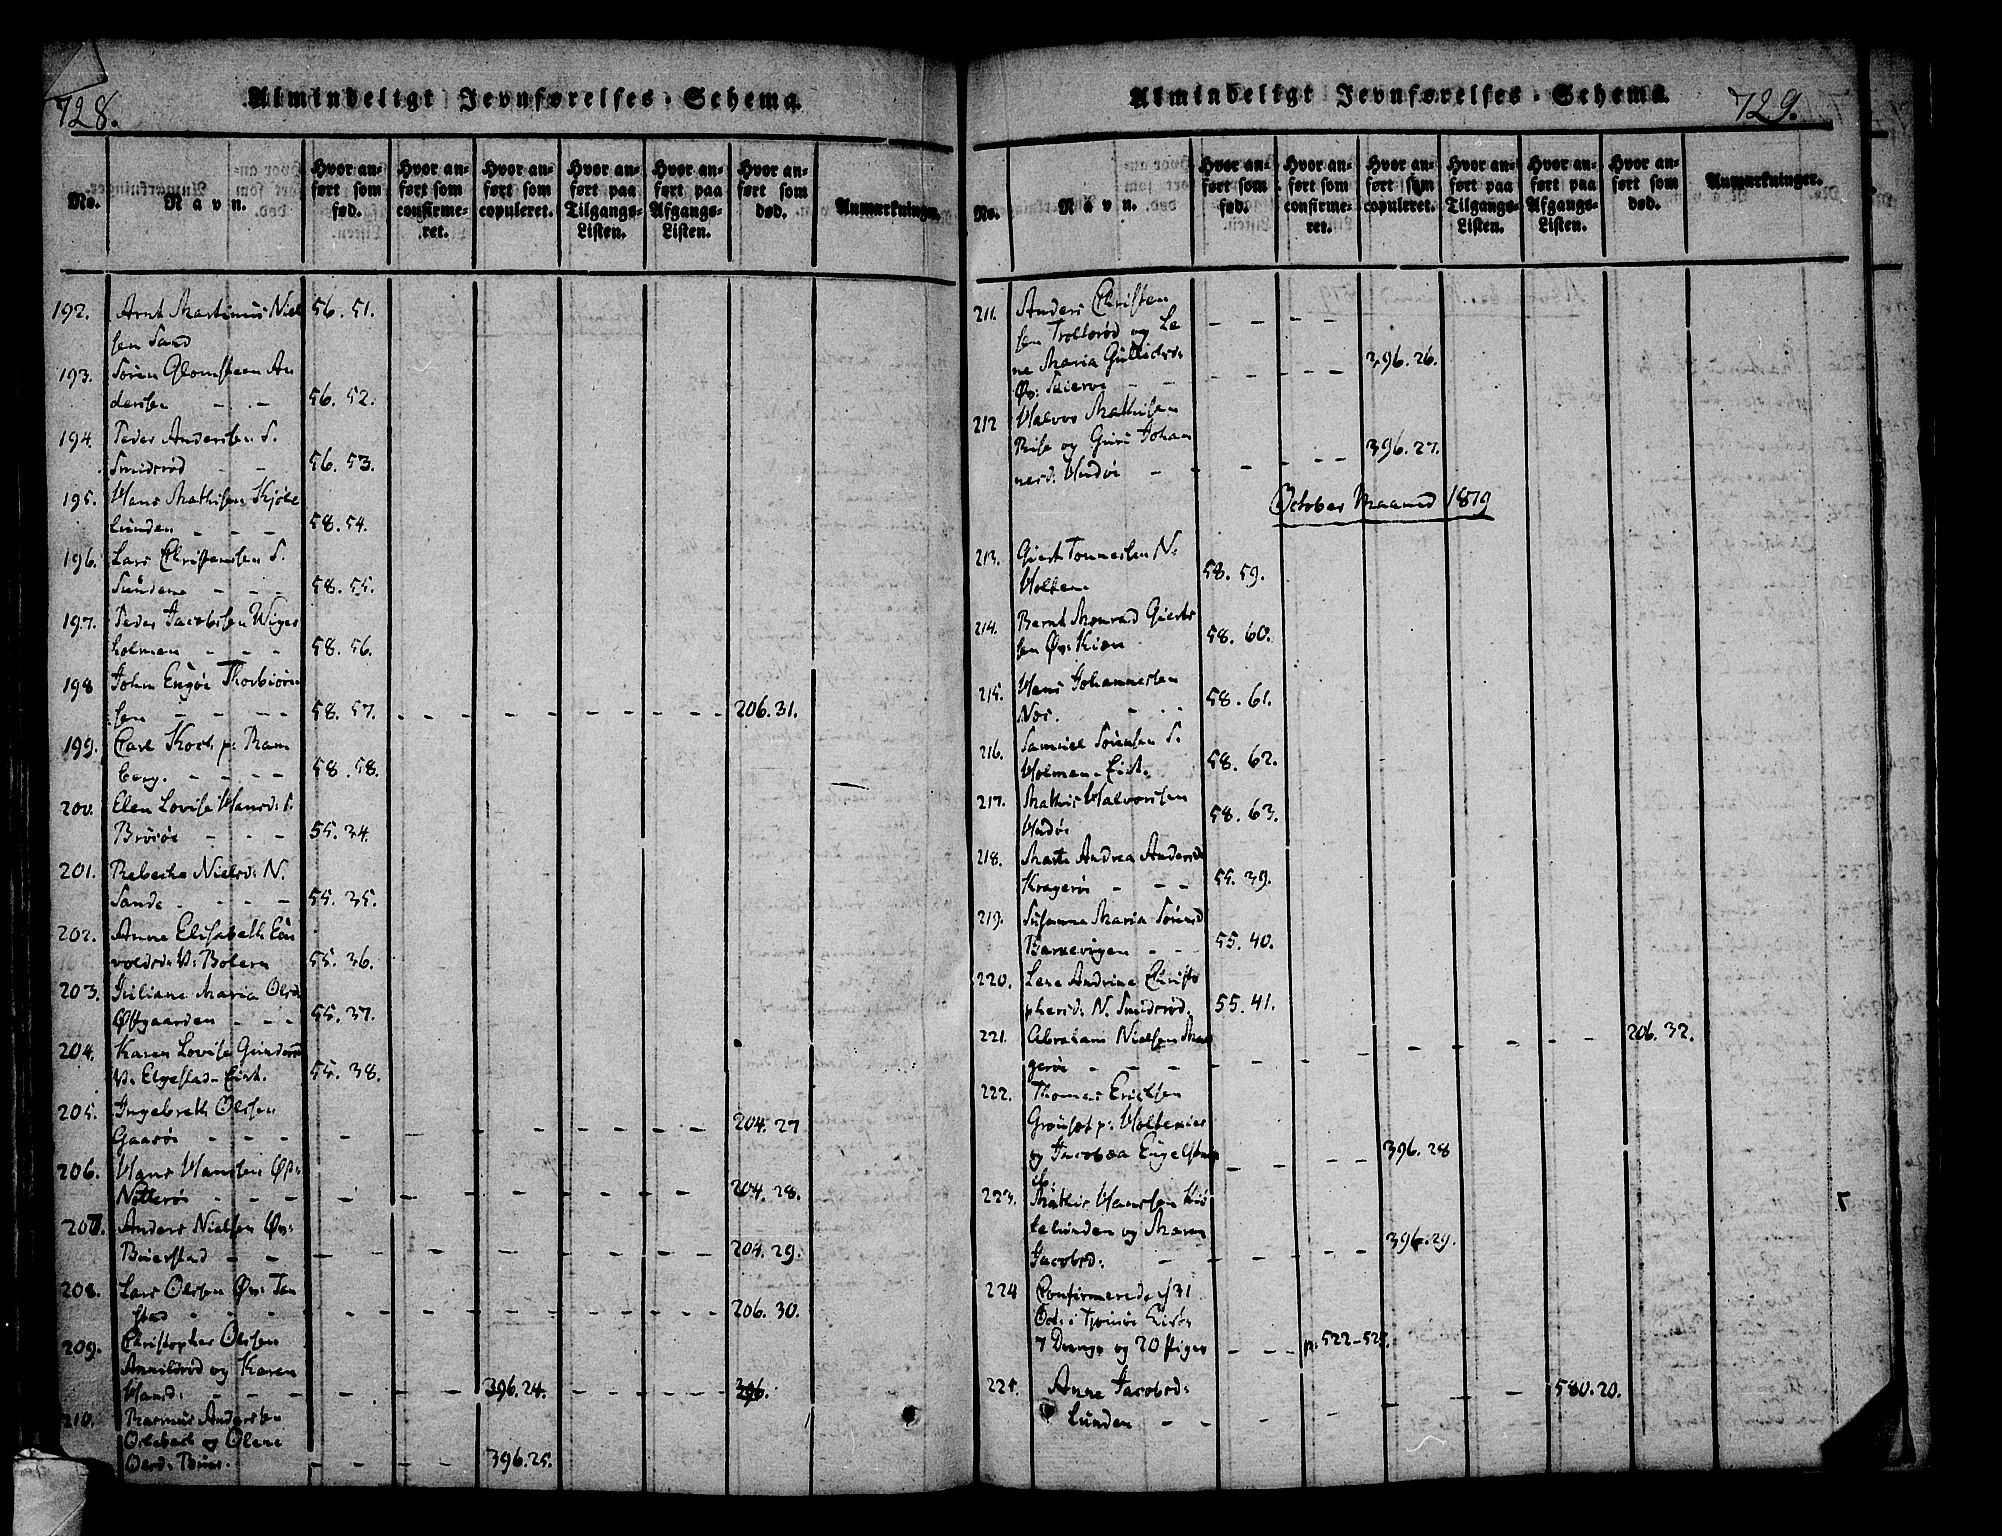 728.
Almindeligt Jevnførelses-Schema.
No.
Navn.
Hvor anført som fød.
Hvor anført som confirmeret.
Hvor anført som copuleret.
Hvor anført paa Tilgangs-Listen.
Hvor anført paa Afgangs-Listen.
Hvor anført som død.
Anmærkninger.
192. Arnt Martinius Niel 56. 51.
sen Sand
193. Søren Glomsteen An
dersen - - 56. 52.
194. Peder Andersen S.
Smidsrød - - 56. 53.
195. Hans Mathisen Kjøle
lunden - - - 58. 54.
196. Lars Christensen S.
Sundene - - - 58. 55.
197. Peder Jacobsen Winge
holmen - - - 58. 56.
198 John Engøe Thorbiørn
sen - - - - 58. 57. - - - 206. 31.
199. Carl Koch p: Ram
berg. - - - - 58. 58.
200. Elen Lovise Hansd: S.
Brøsøe - - - 55. 34.
201. Rebecka Nielsd: N.
Sande - - - - 55. 35.
202. Anne Elisabeth
voldsd: V: Bolærn 55. 36.
203. Juliane Maria Olsd:
Østgaarden - - - 55. 37.
204. Karen Lovise Gunders
V: Elgestad 55. 38.
205. Ingebreth Olsen
Gaasøe - - - - 204. 27
206. Hans Hansen Øs:
Nøtterøe - - - 204. 28.
207. Anders Nielsen Øs:
Buerstad - - - 204. 29.
208. Lars Olsen Øs: Tan
stad - - - 206. 30.
209. Christopher Olsen
Annildrød og Karen
Hansd: - - - 396. 24. - - 206.
210. Rasmus Andersen
Oslebach og Olene
Olsd: Buer. - - - 396. 25.
Almindeligt Jevnførelses-Schema.
729.
No.
Navn.
Hvor anført som fød.
Hvor anført som confirmeret.
Hvor anført som copuleret.
Hvor anført paa Tilgangs-Listen.
Hvor anført paa Afgangs-Listen.
Hvor anført som død.
Anmærkninger.
211. Anders Christen
sen Trollsrød og Le
ne Maria Gulichsd: 396. 26.
Øs:
212 Halvor Mathisen
Rise og Guri Johan 396. 27.
nesd: Hudøe - - -
October Maaned 1819
213. Giert Tønnesen N:
Holten 58. 59.
214. Bernt Monrad Gierts
sen Øs: Kiøn 58. 60.
215. Hans Johannesen
Næs. 58. 61.
216. Samuel Sørensen S:
Holmen 58. 62.
217. Mathis Halvorsen
Hudøe 58. 63.
218. Marte Andrea Andersd
Kragerøe - - - 55. 39.
219. Susanne Maria Sørensd
Barnevigen - - 55. 40.
220. Lene Andrine Christo
phersd: N. Smidsrød. 55. 41.
221. Abraham Nielsen Ma
gerøe - - - - 206. 32.
222. Thomas Erichsen
Grønset p: Holtenæs
og Jacobæa Engels 396. 28
ib:
223. Mathis Hansen Kiø
lelunden og Maren 396. 29.
Jacobsd:
224 Confirmerede d 31
Oct. i Tjømøe Kirke
7 Drenge og 20 Piger - - - p: 522-523.
225. Anne Jacobsd: - - 580. 20.
Lunden - -